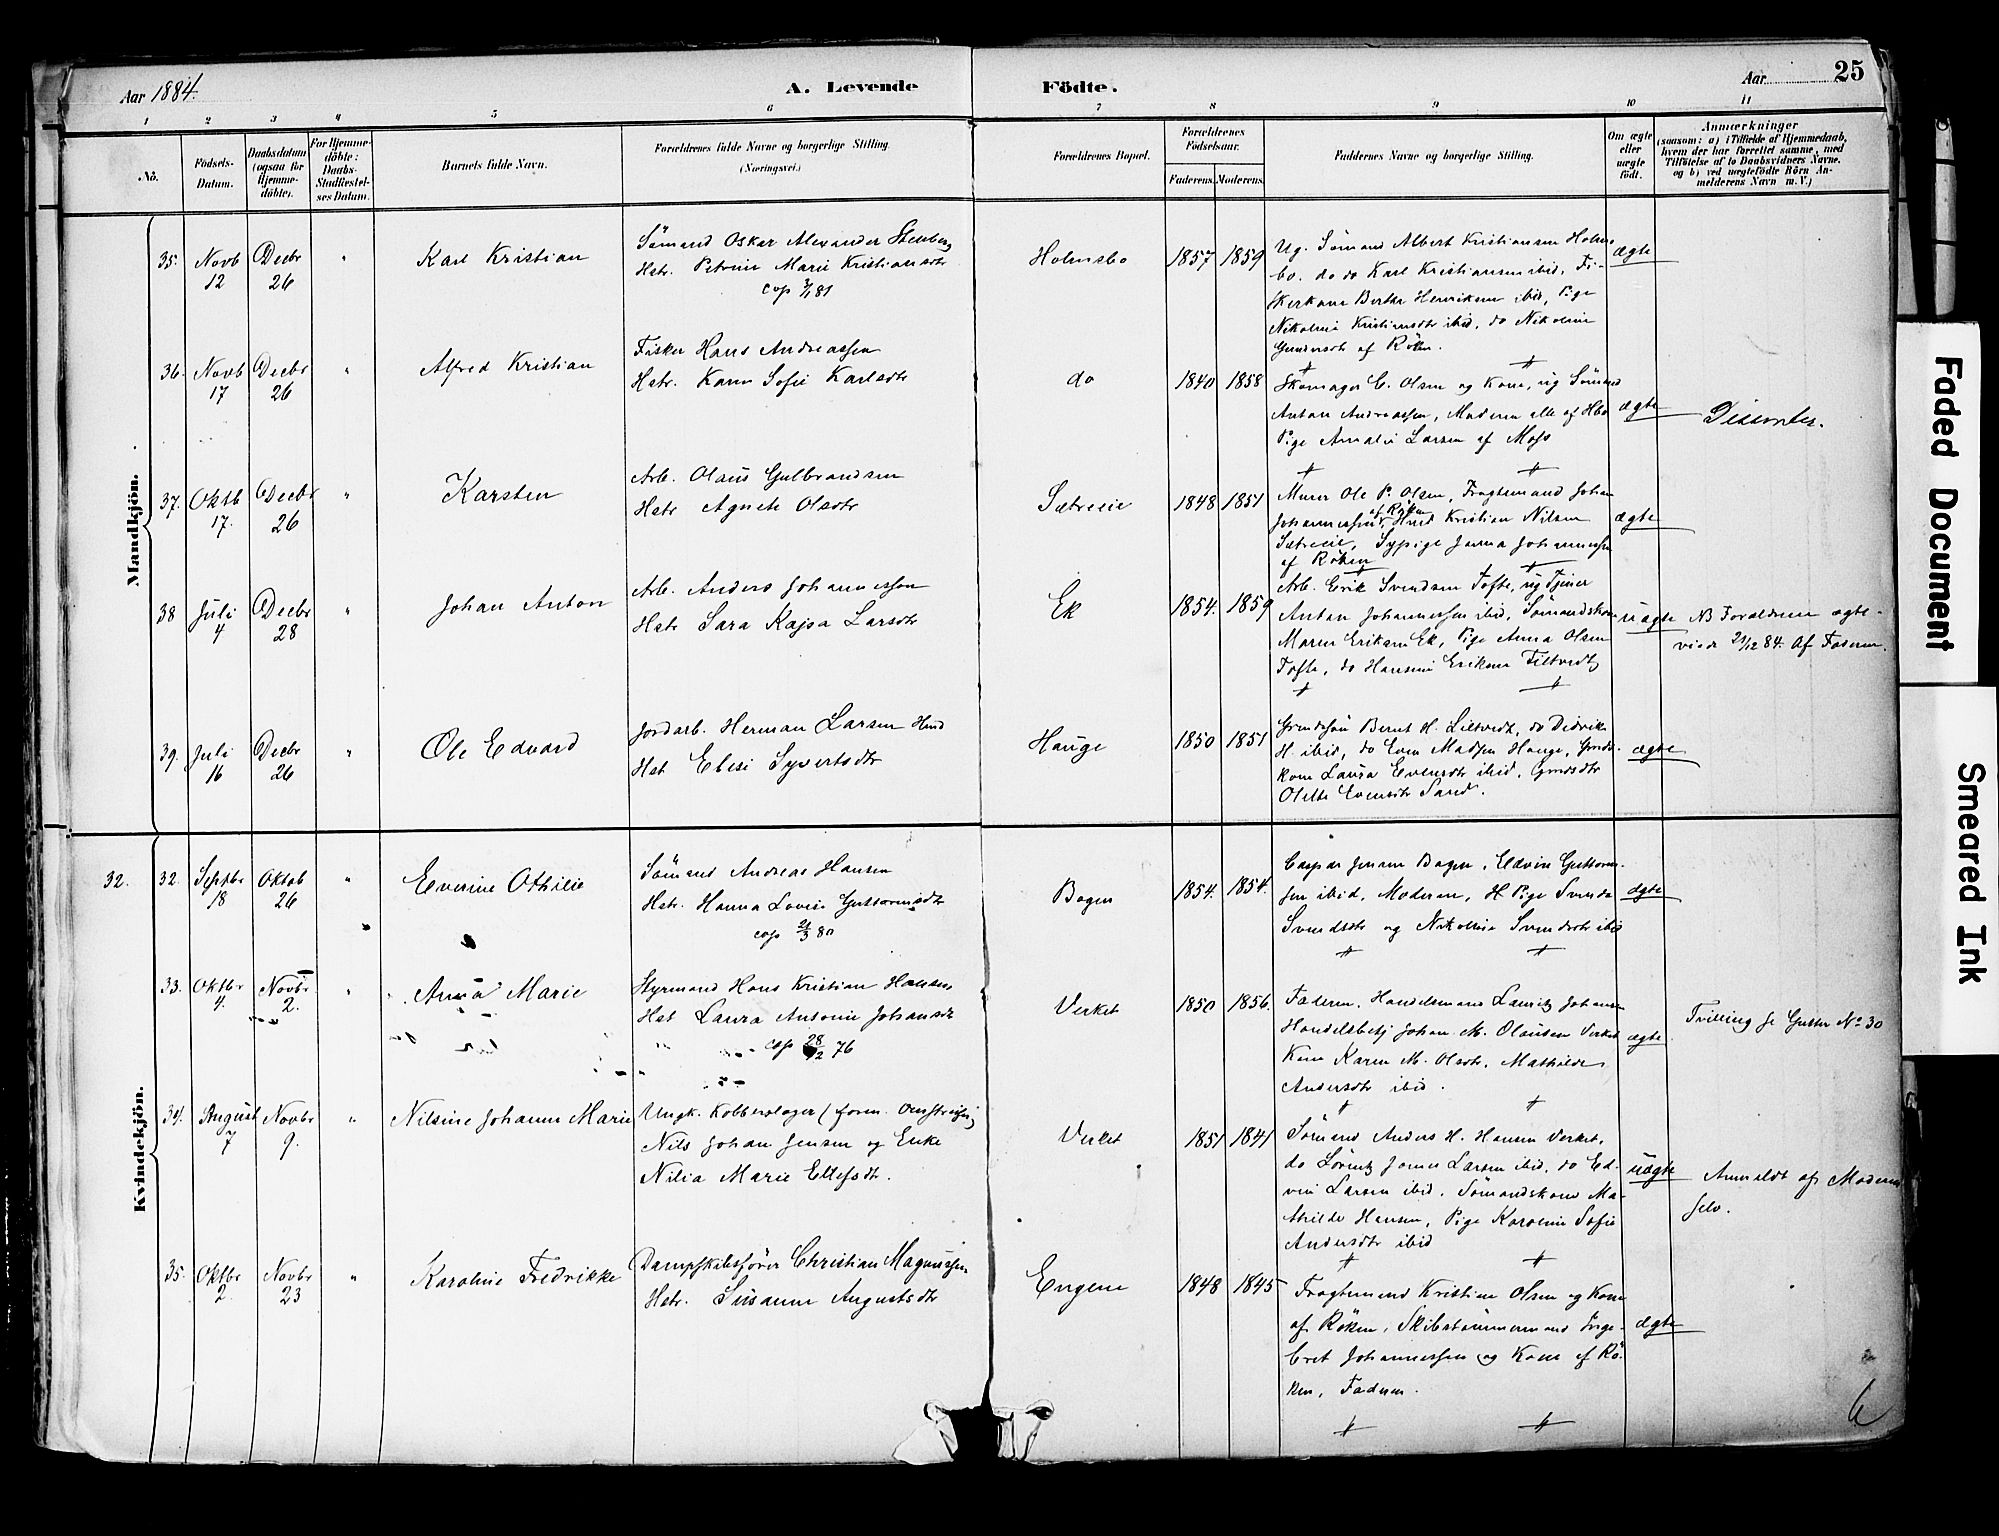 Aar 1884. A. Levende Födte. Aar 25
1 2 3 4 5 6 7 8 9 10 11
No.
Födsels-Datum.
Daabsdatum (ogsaa for Hjemmedöbte).
For Hjemmedöbte: Daabs-Stadfæstelses Datum.
Barnets fulde Navn.
Forældrenes fulde Navne og borgerlige Stilling.
(Næringsvei.)
Forældrenes Bopæl.
Forældrenes Födselsaar.
Faderens. Moderens.
Faddernes Navne og borgerlige Stilling.
Om ægte eller uægte födt.
Anmærkninger
(saasom: a) i Tilfælde af Hjemmedaab,
hvem der har forrettet samme, med
Tilföielse af to Daabsvidners Navne.
og b) ved uægtefödte Börn An-
melderens Navn m. V.)
Mandkjön.
35. Novb 12 Decbr 26 " Karl Kristian
Sömand Oskar Alexander Stenberg
Hstr. Petrine Marie Kristiansdtr
cop 3/1 81
Holmsbo 1857 1859
Ug. Sömand Albert Kristiansen Holms
bo. do do Karl Kristiansen ibid, Fi-
skerkone Berthe Henriksen ibid, Pige
Nikoline Kristiansdtr ibid, do Nikoline
Gundersdtr af Röken.
ægte
36. Novb 17 Decbr 26 " Alfred Kristian
Fisker Hans Andreassen
Hstr. Karen Sofie Karlsdtr
do 1840 1858
Skomager C. Olsen og Kone, ug Sömand
Anton Andreassen, Moderen alle af Hbo
Pige Amalie Larsen af Moss
ægte Dissenter.
37. Oktb 17. Decbr 26 " Karsten
Arb. Olaus Gulbrandsen
Hstr Agnete Olsdtr
Sætreeie 1848 1851
Murer Ole P. Olsen, Fragtemand Johan
Johannessen af Röken Hmd Kristian Nilsen
Sætreeie, Sypige Janna Johannessen
af Röken
ægte
38 Juli 4 Decbr 28 " Johan Anton
Arb. Anders Johannessen
Hstr Sara Kajsa Larsdtr
Ek 1854. 1859
Arb. Erik Svendsen Tofte, ug Tjener
Anton Johannessen ibid, Sömandskone
Maren Eriksen Ek, Pige Anna Olsen
Tofte, do Hansine Eriksen Filtvedt
uægte NB Forældrene ægte-
viede 21/12 84. Af Faderen.
39. Juli 16 Decbr 26 " Ole Edvard
Jordarb. Herman Larsen Hmd
Hst Elesi Syvertsdtr
Hauge 1850 1851
Grndsön Bernt H. Liltvedt, do Didrik
H. ibid, do Even Madsen Hauge, Grndr.
kone Laura Evensdtr ibid, Grndsdtr
Olette Evensdtr Sand.
ægte
Kvindekjön.
32. 32. Septbr 18 Oktob 26 " Everine Othilie
Sömand Andreas Hansen
Hstr. Hanna Lovise Guttormsdtr
cop 21/3 80
Bogen 1854. 1854.
Caspar Jensen Bogen, Edvin Guttorm-
sen ibid, Moderen, H. Pige Svenda
Svendsdtr og Nikoline Svendsdtr ibid
ægte
33. Oktbr 4. Novbr 2. " Anna Marie
Styrmand Hans Kristian Hansen
Hst Laura Antonie Johansdtr
cop 28/12 76
Verket 1850 1856.
Faderen, Handelsmand Lauritz Johansen
Handelsbetj Johan M. Olausen Verket
Kone Karen M. Olsdtr, Mathilde
Andersdtr ibid.
ægte Tvilling se Gutter No 30
34. August 7 Novbr 9. " Nilsine Johanne Marie
Ungk. Kobberslager (form.
Nils Johan Jensen og Enke
Nilia Marie Ellefsdtr.
Verket 1851 1841
Sömand Anders H. Hansen Verket,
do Lörentz Jonas Larsen ibid, do Ed-
vin Larsen ibid, Sömandskone Ma-
thilde Hansen, Pige Karoline Sofie
Andersdtr ibid
uægte Anmeldt af Moderen
selv.
35. Oktbr 2 Novbr 23 " Karoline Fredrikke
Dampskibsförer Christian Magnussen
Hstr. Susanne Augustsdtr
Engene 1848 1845
Fragtemand Kristian Olsen og Kone
af Röken, Skibstömmermand Inge-
bret Johannessen og Kone af Rö-
ken, Faderen.
ægte
Faded Document
Smeared Ink